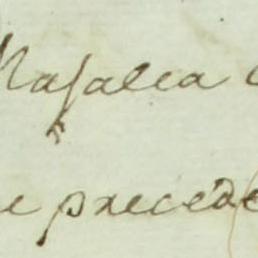 Nasalea
e precede